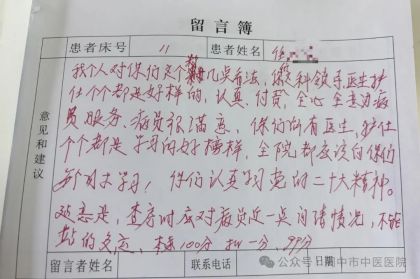 留言簿
患者床号 11 患者姓名 任
我个人对你们这个 几点看法，你科领导医生护
士个个都是好样的，认真、付责，全心全意为病
员服务，病员很满意，你们所有医生，护士
个个都是学习的好榜样，全院都应该向你们
学习！你们认真学习党的二十大精神。
是，查房时应对病员近一点问清情况，不能
站的太远，本来100分扣一分，99分
意见和建议
患者签名 联系电话 日期
公众号·阆中市中医医院